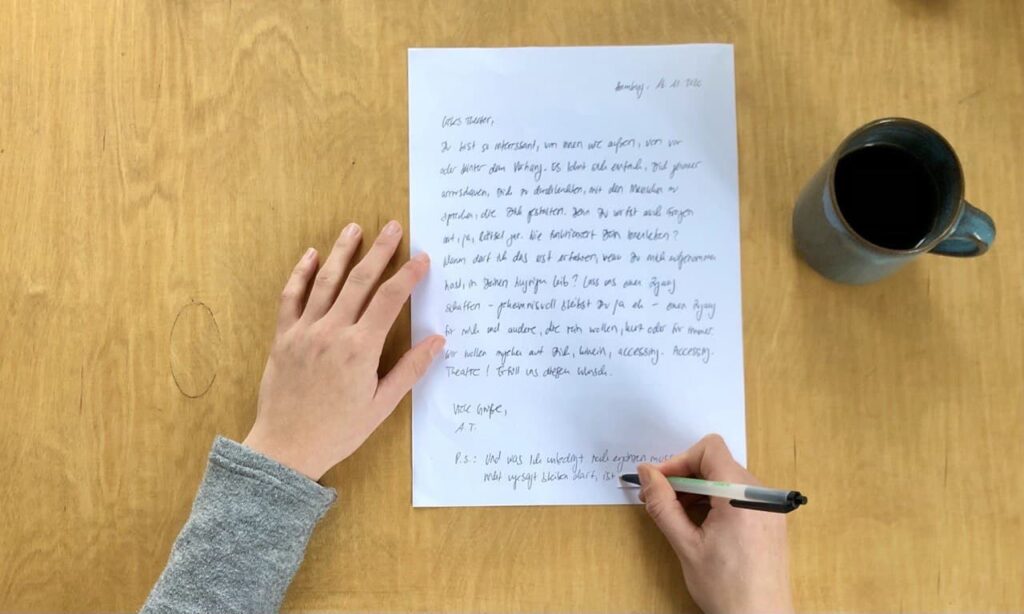 Hamburg, 16.11.2020
Liebes Theater,
Du bist so interessant, von innen wie außen, von vor
oder hinter dem Vorhang. Es lohnt sich einfach, Dich genauer
anzuschauen, Dich zu durchleuchten, mit den Menschen zu
sprechen, die Dich gestalten. Denn Du wirfst auch Fragen
auf, ja, Rätsel gar. Wie funktioniert Dein Innenleben?
Wann darf ich das erst erfahren, wenn Du mich aufgenommen
hast, in Deinen hungrigen Leib? Lass uns einen Zugang
schaffen – geheimnisvoll bleibst Du ja eh – einen Zugang
für mich und andere, die rein wollen, kurz oder für immer.
Wir wollen zugehen auf Dich, hinein, accessing. Accessing
Theatre! Erfüll uns diesen Wunsch.
Viele Grüße,
A.T.
P.S.: Und was ich unbedingt noch ergänzen muss
nicht ungesagt bleiben darf, ist